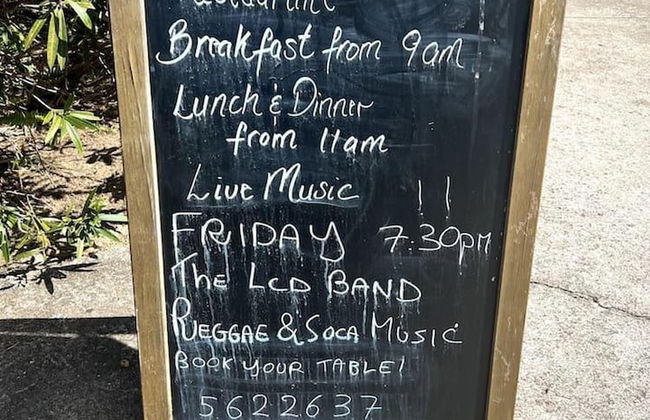 Restaurant
Breakfast from 9am
Lunch & Dinner
from 11am
Live Music !!
FRIDAY 7:30pm
THE LCD BAND
REGGAE & SOCA MUSIC
BOOK YOUR TABLE!
5622637